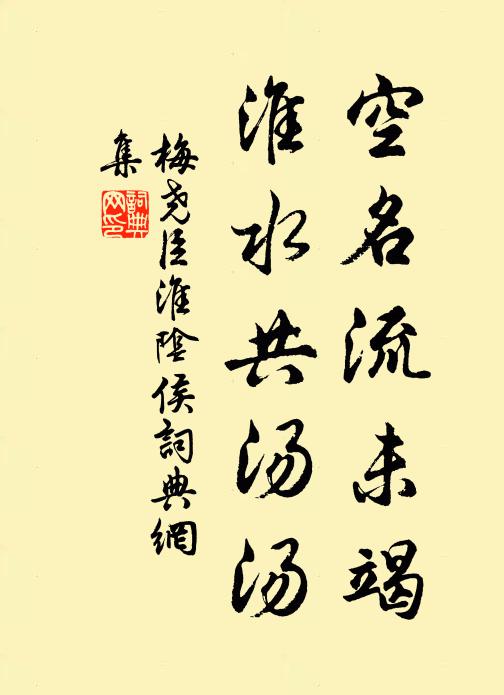 空名流未竭
淮水共汤汤
梅尧臣淮陰侯詞典網
集
詞典网印